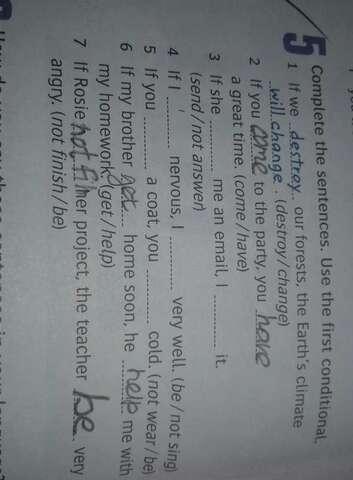 5 Complete the sentences. Use the first conditional.
1 If we destroy our forests, the Earth's climate
will change. (destroy/change)
2 If you come to the party, you have
a great time. (come/have)
3 If she ........ me an email, I ........ it.
(send/not answer)
4 If I ........ nervous, I ........ very well. (be/not sing)
5 If you ........ a coat, you ........ cold. (not wear/be)
6 If my brother get home soon, he help me with
my homework. (get/help)
7 If Rosie not fi her project, the teacher be very
angry. (not finish/be)